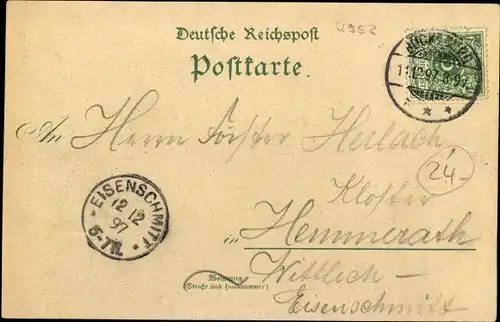 4952
Deutsche Reichspost
Postkarte.
BÜCKEBURG
11.12.97. 8-9
An Herrn Förster Herlach
24-
Kloster
EISENSCHMITT
12 12
97
6-7N.
in Hemmerath
Wittlich -
Wohnung
(Straße und Hausnummer)
Eisenschmitt